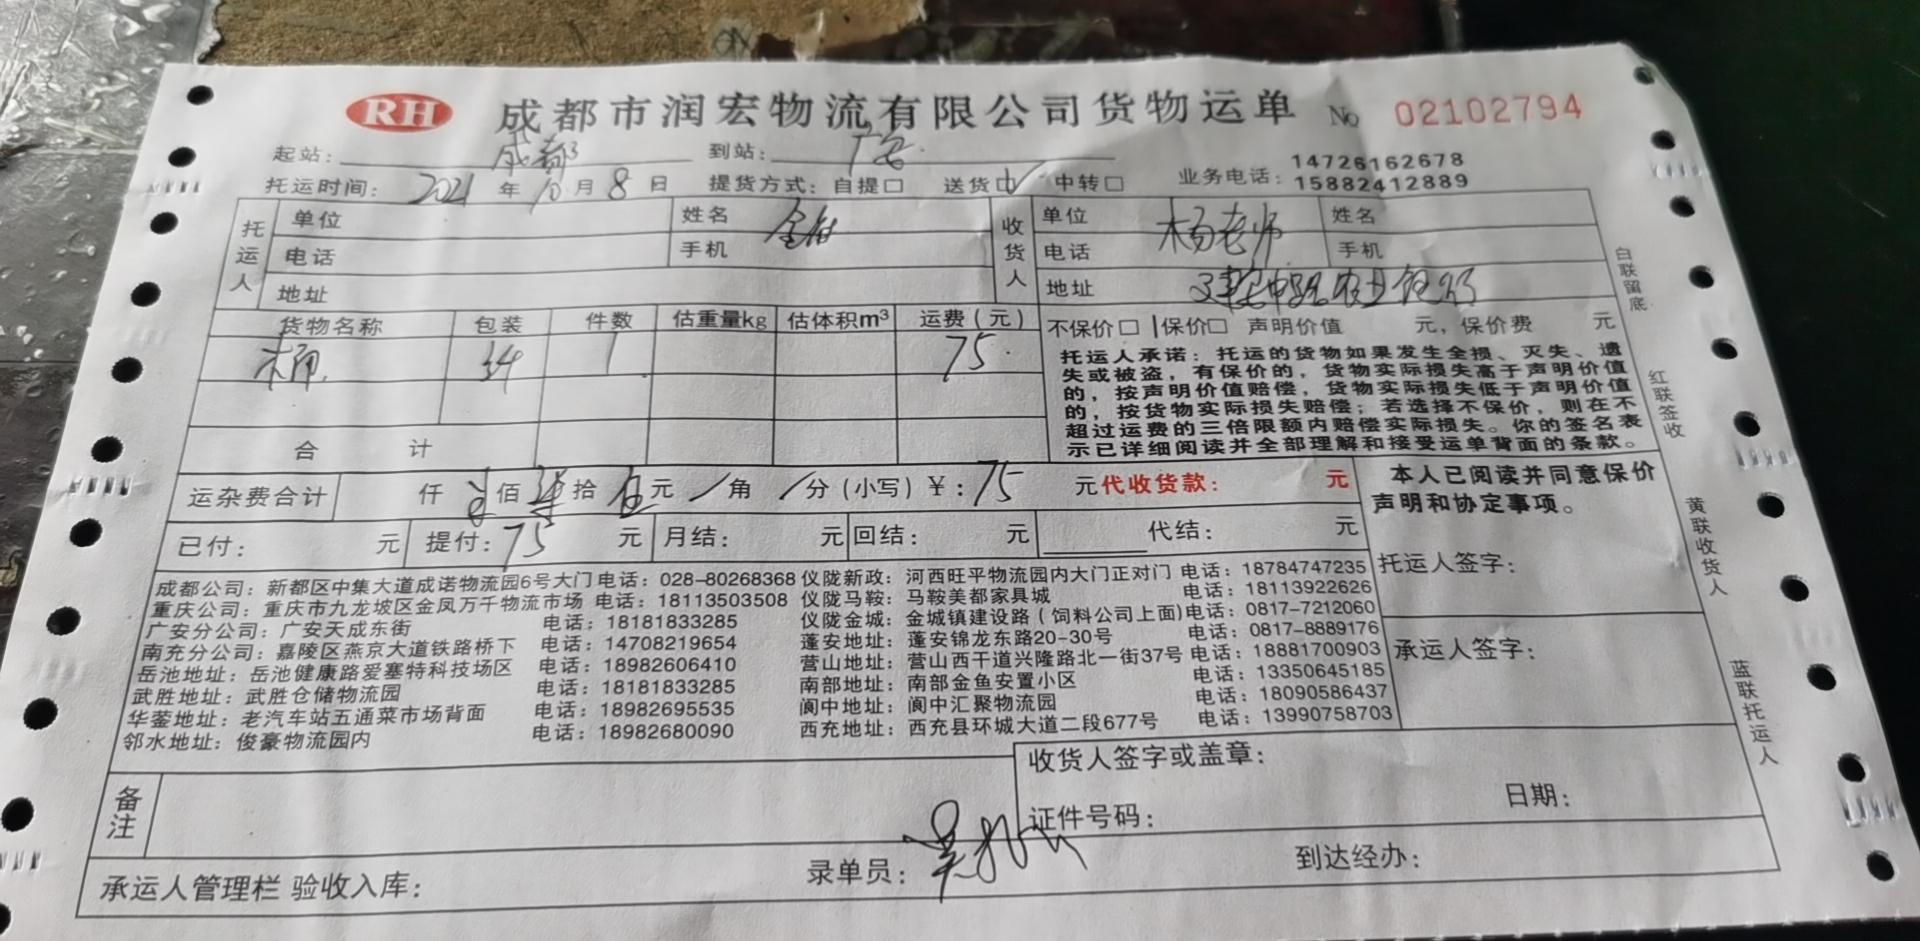 RH 成都市润宏物流有限公司货物运单 No 02102794
起站: 成都 到站: 广安
托运时间: 2021 年 10 月 8 日 提货方式: 自提□ 送货☑ 中转□ 业务电话: 14726162678
15882412889
托运人 单位 姓名 收货人 单位 杨老师 姓名
电话 手机 电话 手机
地址 地址
货物名称 包装 件数 估重量kg 估体积m³ 运费(元) 不保价□ 保价□ 声明价值 元, 保价费 元
1 75
托运人承诺: 托运的货物如果发生全损、灭失、遗
失或被盗, 有保价的, 货物实际损失高于声明价值
的, 按声明价值赔偿, 货物实际损失低于声明价值
的, 按货物实际损失赔偿; 若选择不保价, 则在不
超过运费的三倍限额内赔偿实际损失。你的签名表
示已详细阅读并全部理解和接受运单背面的条款。
合 计
运杂费合计 仟 佰 拾 伍 元 / 角 / 分 (小写) ¥: 75 元 代收货款: 元
本人已阅读并同意保价
声明和协定事项。
已付: 元 提付: 75 元 月结: 元 回结: 元 代结: 元
托运人签字:
承运人签字:
成都公司: 新都区中集大道成诺物流园6号大门 电话: 028-80268368 仪陇新政: 河西旺平物流园内大门正对门 电话: 18784747235
重庆公司: 重庆市九龙坡区金凤万千物流市场 电话: 18113503508 仪陇马鞍: 马鞍美都家具城 电话: 18113922626
广安分公司: 广安天成东街 电话: 18181833285 仪陇金城: 金城镇建设路(饲料公司上面) 电话: 0817-7212060
南充分公司: 嘉陵区燕京大道铁路桥下 电话: 14708219654 蓬安地址: 蓬安锦龙东路20-30号 电话: 0817-8889176
岳池地址: 岳池健康路爱塞特科技场区 电话: 18982606410 营山地址: 营山西干道兴隆路北一街37号 电话: 18881700903
武胜地址: 武胜仓储物流园 电话: 18181833285 南部地址: 南部金鱼安置小区 电话: 13350645185
华蓥地址: 老汽车站五通菜市场背面 电话: 18982695535 阆中地址: 阆中汇聚物流园 电话: 18090586437
邻水地址: 俊豪物流园内 电话: 18982680090 西充地址: 西充县环城大道二段677号 电话: 13990758703
备注
收货人签字或盖章:
证件号码: 日期:
承运人管理栏 验收入库: 录单员: 到达经办:
白联留底
红联签收
黄联收货人
蓝联托运人